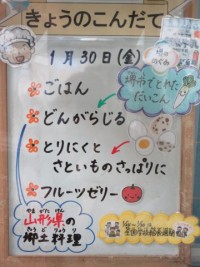 きょうのこんだて
1月30日(金)
ごはん
どんがらじる
堺市でとれた
だいこん
とりにくと
さといものさっぱりに
フルーツゼリー
山形県の
やまがたけん
郷土料理
きょうどりょうり